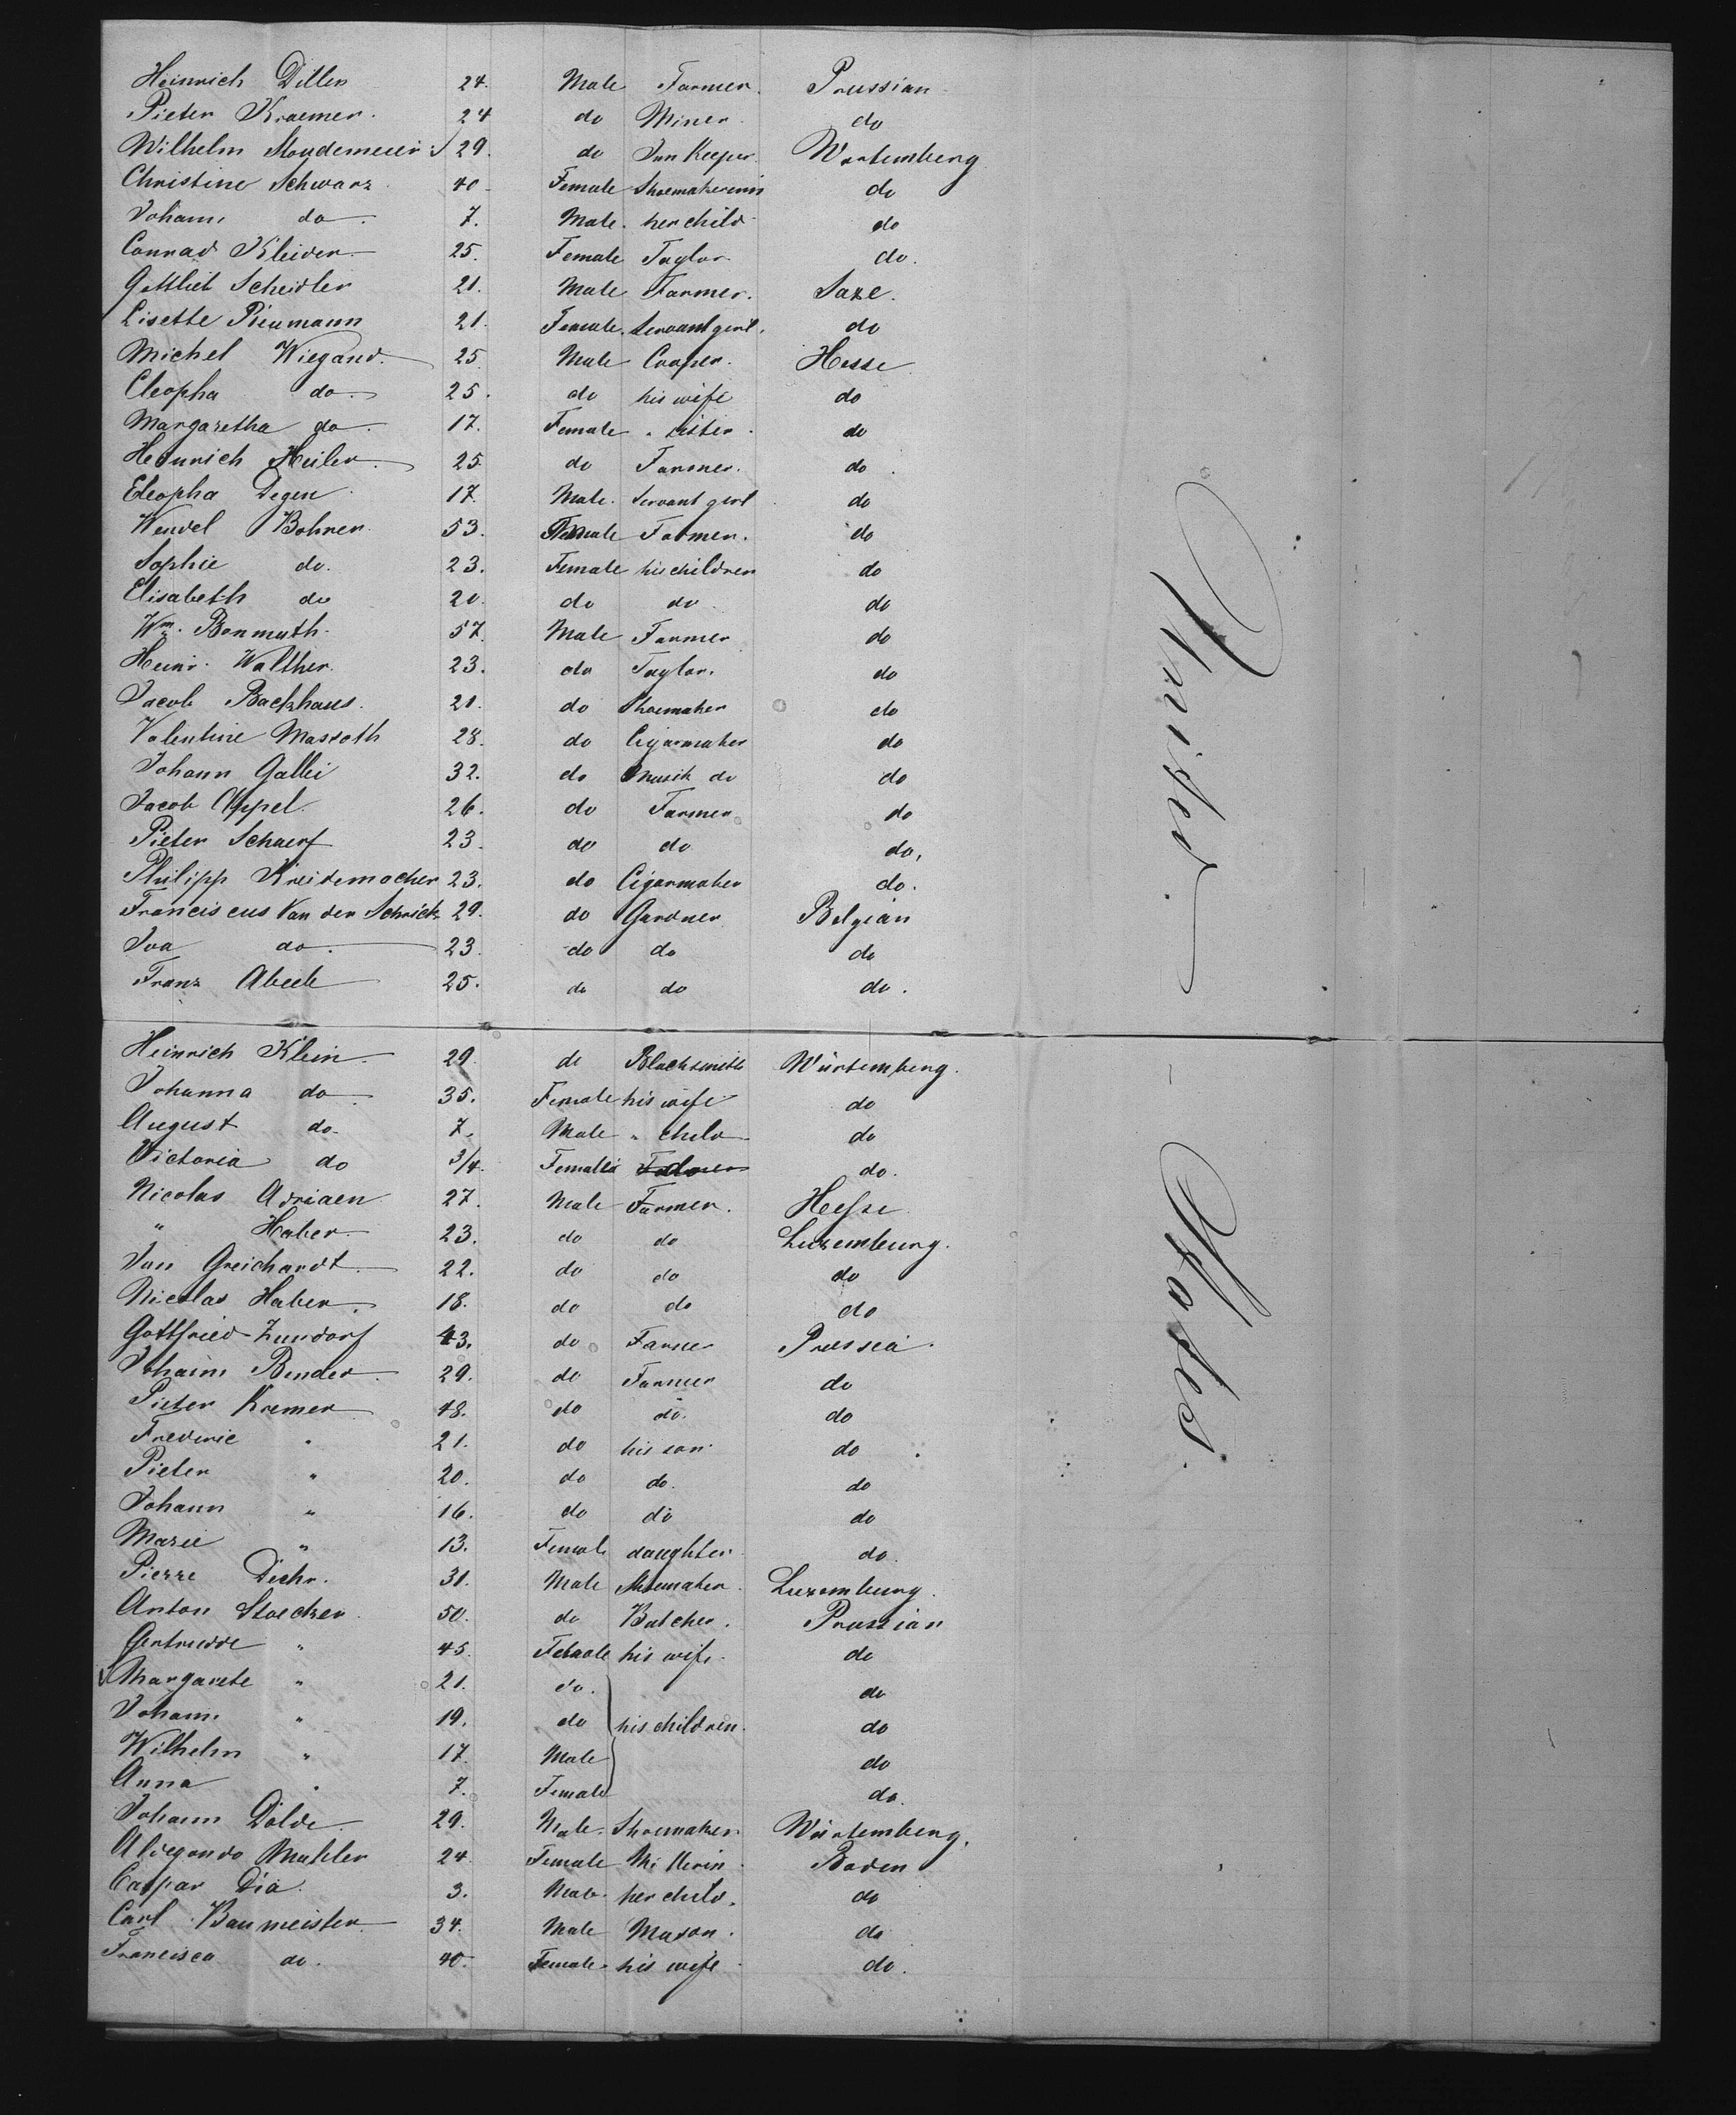 Heinrich Diller 24. Male Farmer. Prussian
Pieter Kraemer. 24 do Miner. do
Wilhelm 29. do Inn Keeper. Wurtemberg
Christine Schwarz 40 Female Shoemakerinn do
Johann do. 7. Male. her child do
Conrad Kleider 25. Female Taylor. do.
Gottlieb Scheidler 21. Male Farmer. Saxe.
Lisette Riemann 21. Female. Servant girl. do
Michel Wiegand. 25. Male Cooper. Hesse
Cleopha do. 25. do his wife do
Margaretha do. 17. Female " sister. do
Heinrich Heiler. 25. do Farmer. do.
Cleopha Degen 17. Male. Servant girl do
Wendel Bohner. 53. Male Farmer. do
Sophie do. 23. Female his children do
Elisabeth do 20. do do do
Wm. Bonmuth. 57. Male Farmer do
Heinr. Walther. 23. do Taylor. do
Jacob Backhaus. 21. do Shoemaker do
Valentine Massoth 28. do Cigarmaker do
Johann Gallei 32. do Musik do do
Jacob Appel. 26. do Farmer do
Pieter Schaerf 23. do do do,
Philipp Kreidemacher 23. do Cigarmaker do.
Franciscus Van der Schrick 29. do Gardner Belgian
Iva do. 23. do do do
Franz Abeele 25. do do do.
Heinrich Klein. 29. do Blacksmith Würtemberg.
Johanna do. 35. Female his wife do
August do. 7. Male " child do
Victoria do 3/4. Female do.
Nicolas Adriaen 27. Male Farmer. Hesse
" Haber. 23. do do Luxemburg.
Jan Greichardt. 22. do do do
Nicolas Haber. 18. do do do
Gottfried Zundorf 43. do Farmer Prussia.
Johann Bender. 29. do Farmer do
Pieter Kremer 48. do do. do
Frederic " 21. do his son. do.
Pieter " 20. do do. do
Johann " 16. do do do
Marie " 13. Female daughter do.
Pierre Dichr. 31. Male Shoemaker. Luxemburg.
Anton Stoecker. 50. do Butcher. Prussian
Gertrudde " 45. Female his wife. do
Margarete " 21. do. do
Johann " 19. do his children. do
Wilhelm " 17. Male do
Anna " 7. Female do.
Johann Dolde. 29. Male. Shoemaker. Würtemberg.
Aldegonda Mahler 24. Female Millerin. Baden
Caspar Dia. 3. Male. her child. do
Carl Baumeister. 34. Male Mason. do
Francisca do. 40. Female his wife do.
United
States.